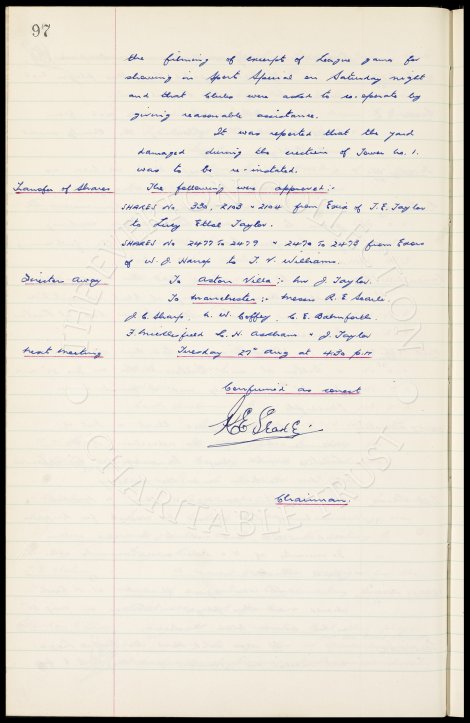 97
the filming of excerpts of League games for
showing in Sport Special on Saturday night
and that Clubs were asked to co-operate by
giving reasonable assistance.
It was reported that the yard
damaged during the erection of Tower No. 1.
was to be re-instated.
Transfer of Shares The following were approved:-
SHARES No 330, 2103 & 2104 from Exix of T. E. Taylor
to Lucy Ethel Taylor.
SHARES No 2477 To 2479 & 2470 To 2473 from Exors
of W. J. to T. V. Williams.
Director away To Aston Villa:- Mr J. Taylor.
To Manchester:- Messrs R. E. Searle.
J. C. Sharp, N. W. Coffey, C. E. Balmforth
F. Micklesfield C. H. & J. Taylor
Next Meeting Tuesday 27th Aug at 4.30 P.M
Confirmed as correct
R E Searle
Chairman.
THE EVERTON COLLECTION
CHARITABLE TRUST